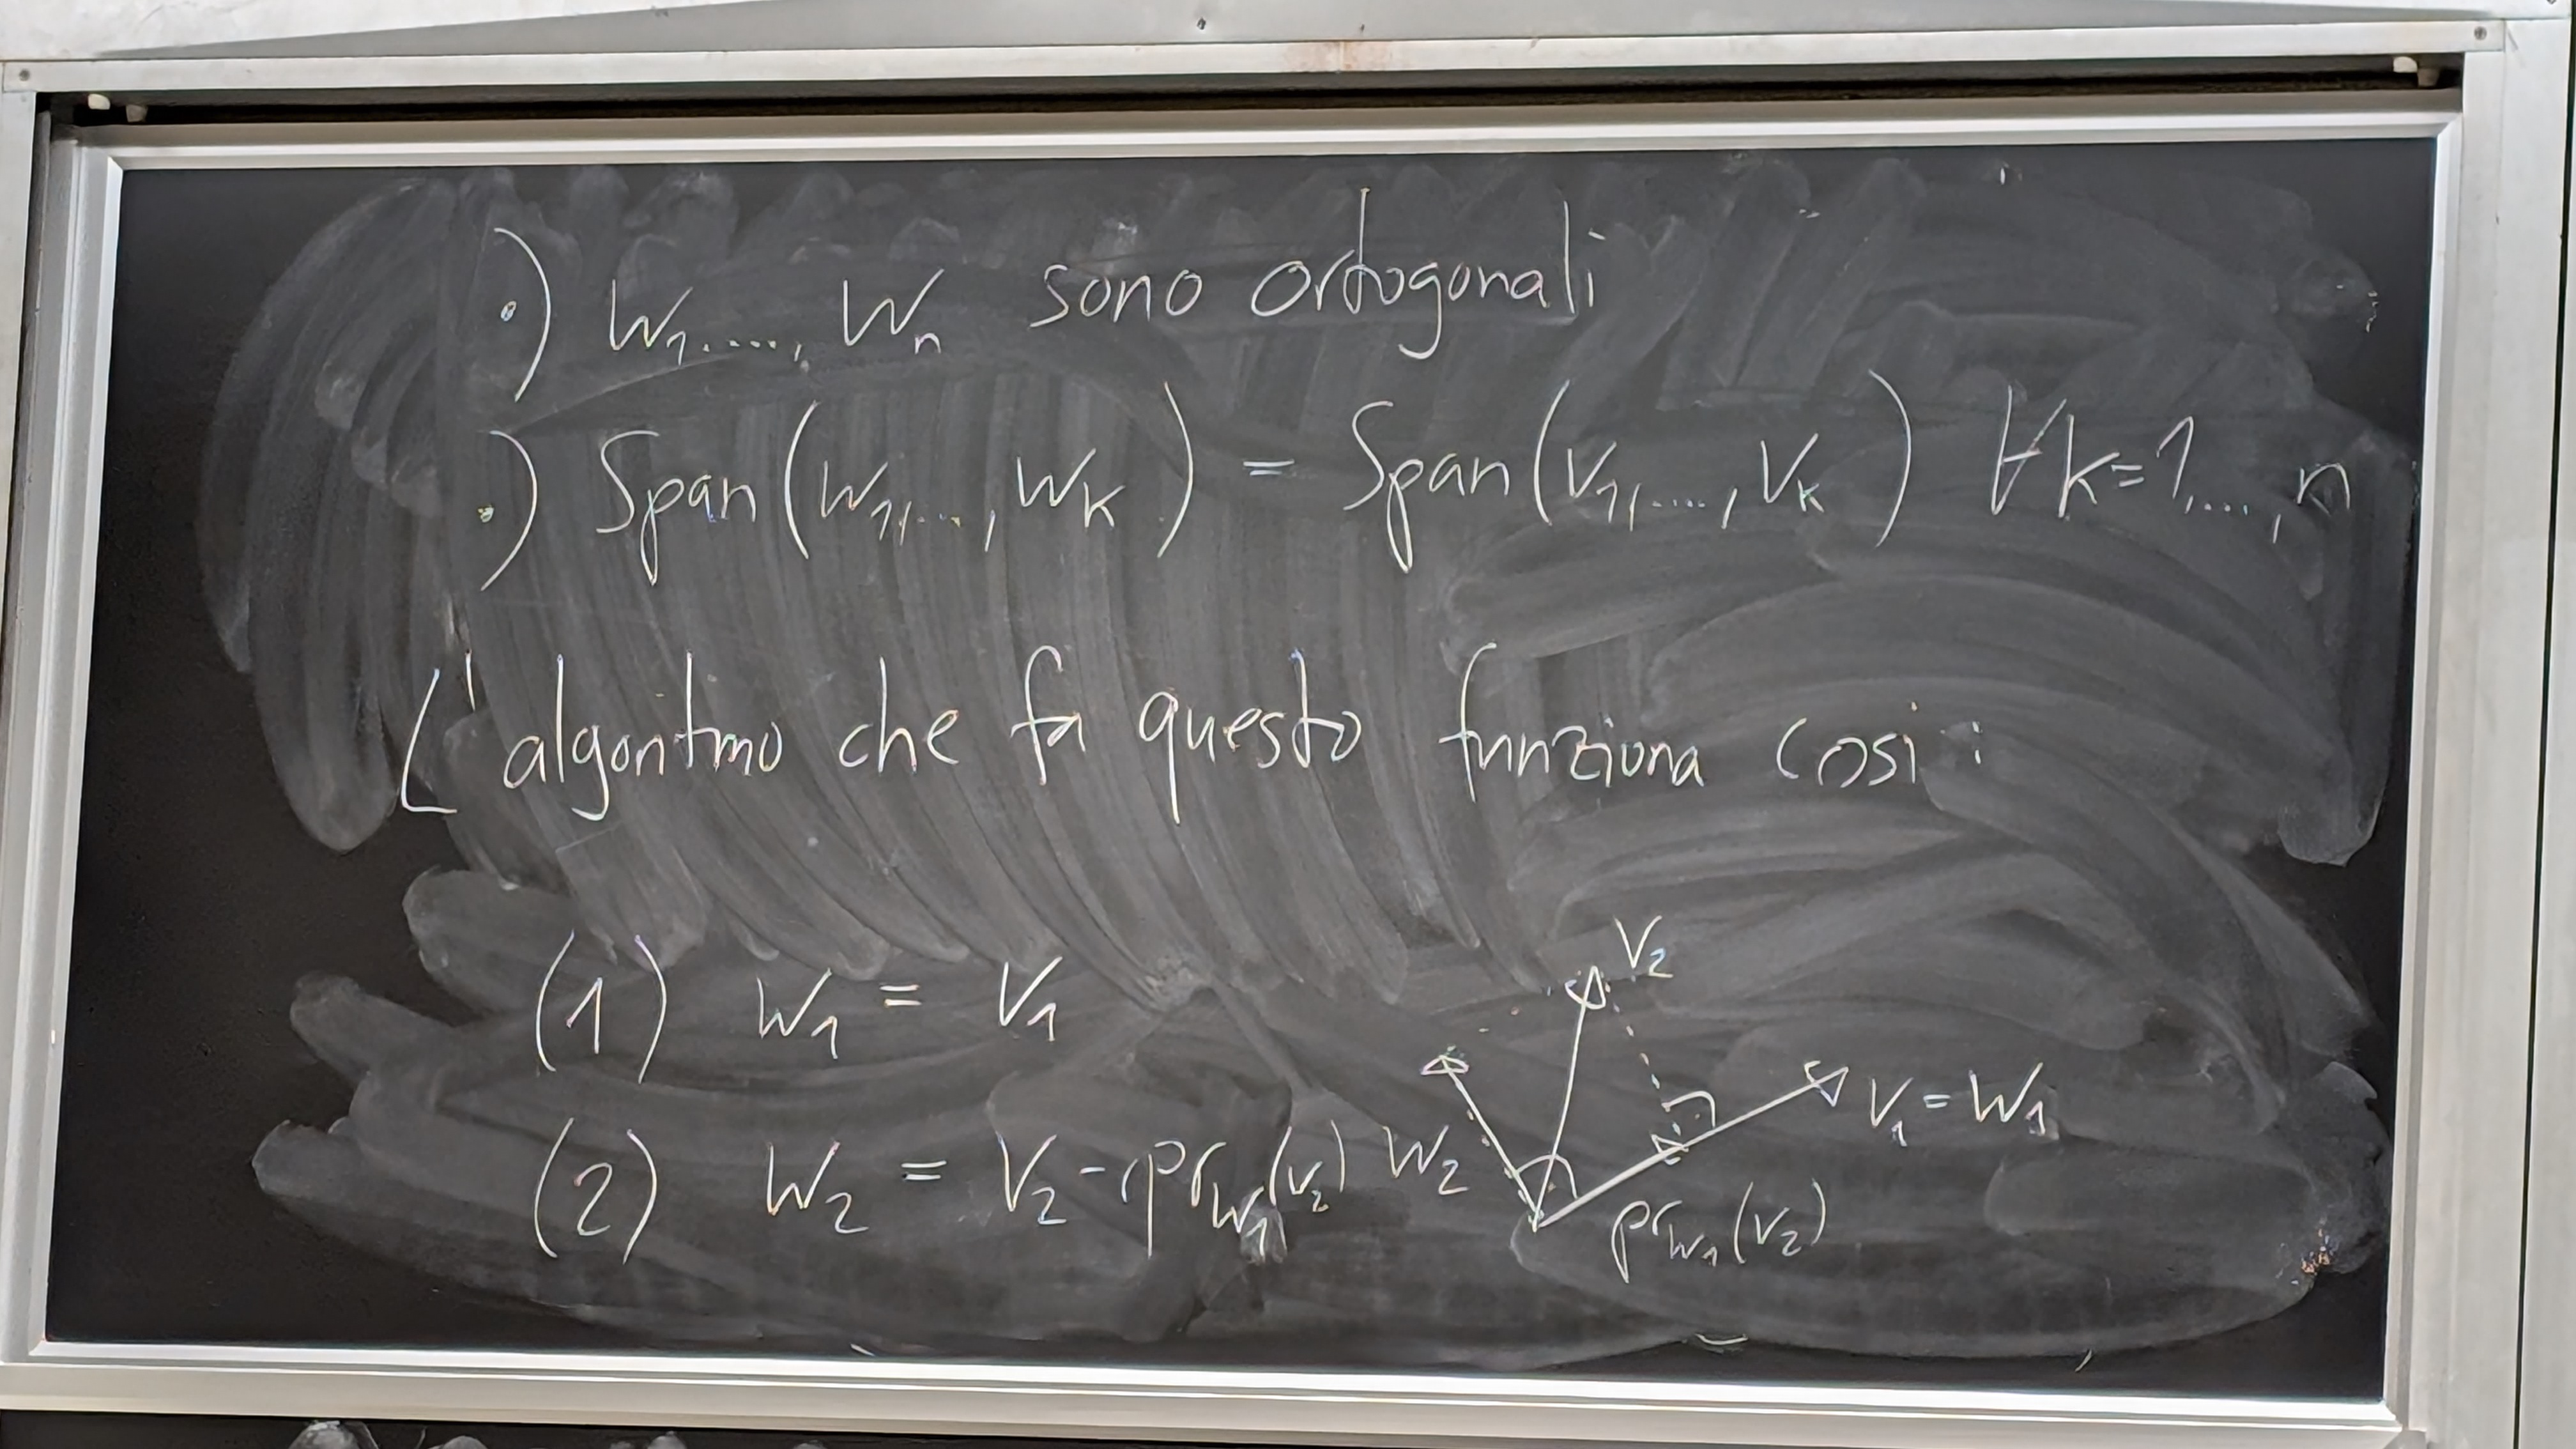 •) w₁,...., wₙ sono ortogonali
•) Span(w₁,...,wₖ) = Span(v₁,....,vₖ) ∀k=1,...,n
L'algoritmo che fa questo funziona così:
(1) w₁ = v₁
(2) w₂ = v₂ - pr_w₁(v₂)
v₂
v₁ = w₁
w₂
pr_w₁(v₂)